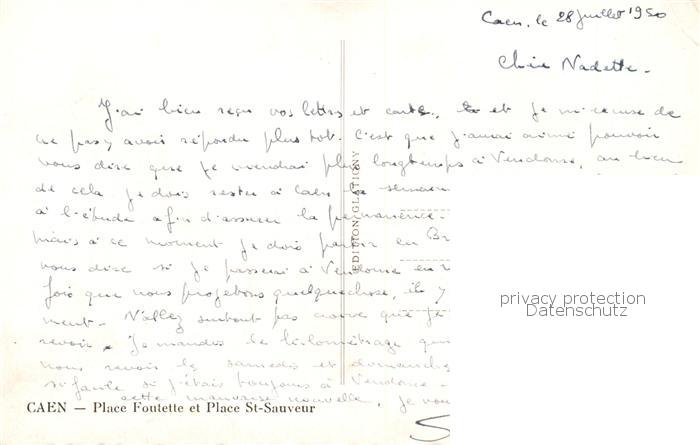 Caen, le 28 juillet 1950
Chère Nadette.
J'ai bien reçu vos lettres et carte, et je m'excuse de
ne pas y avoir répondu plus tot. C'est que j'aurai aimé pouvoir
vous dire que je viendrai plus longtemps à Vendome, au lieu
de cela je dois rester à Caen la semaine
à l'étude afin d'assurer la permanence.
mais à ce moment je dois partir en Br
vous dire si je passerai à Vendome en r
fois que nous projetons quelquechose, il y
ment. N'allez surtout pas croire que je
revoir. Je maudis le kilométrage qui
nous revoir le samedis et dimanche
si faute si j'étais toujours à Vendome
cette mauvaise nouvelle, je vou
EDITION GLATIGNY
privacy protection
Datenschutz
CAEN — Place Foutette et Place St-Sauveur